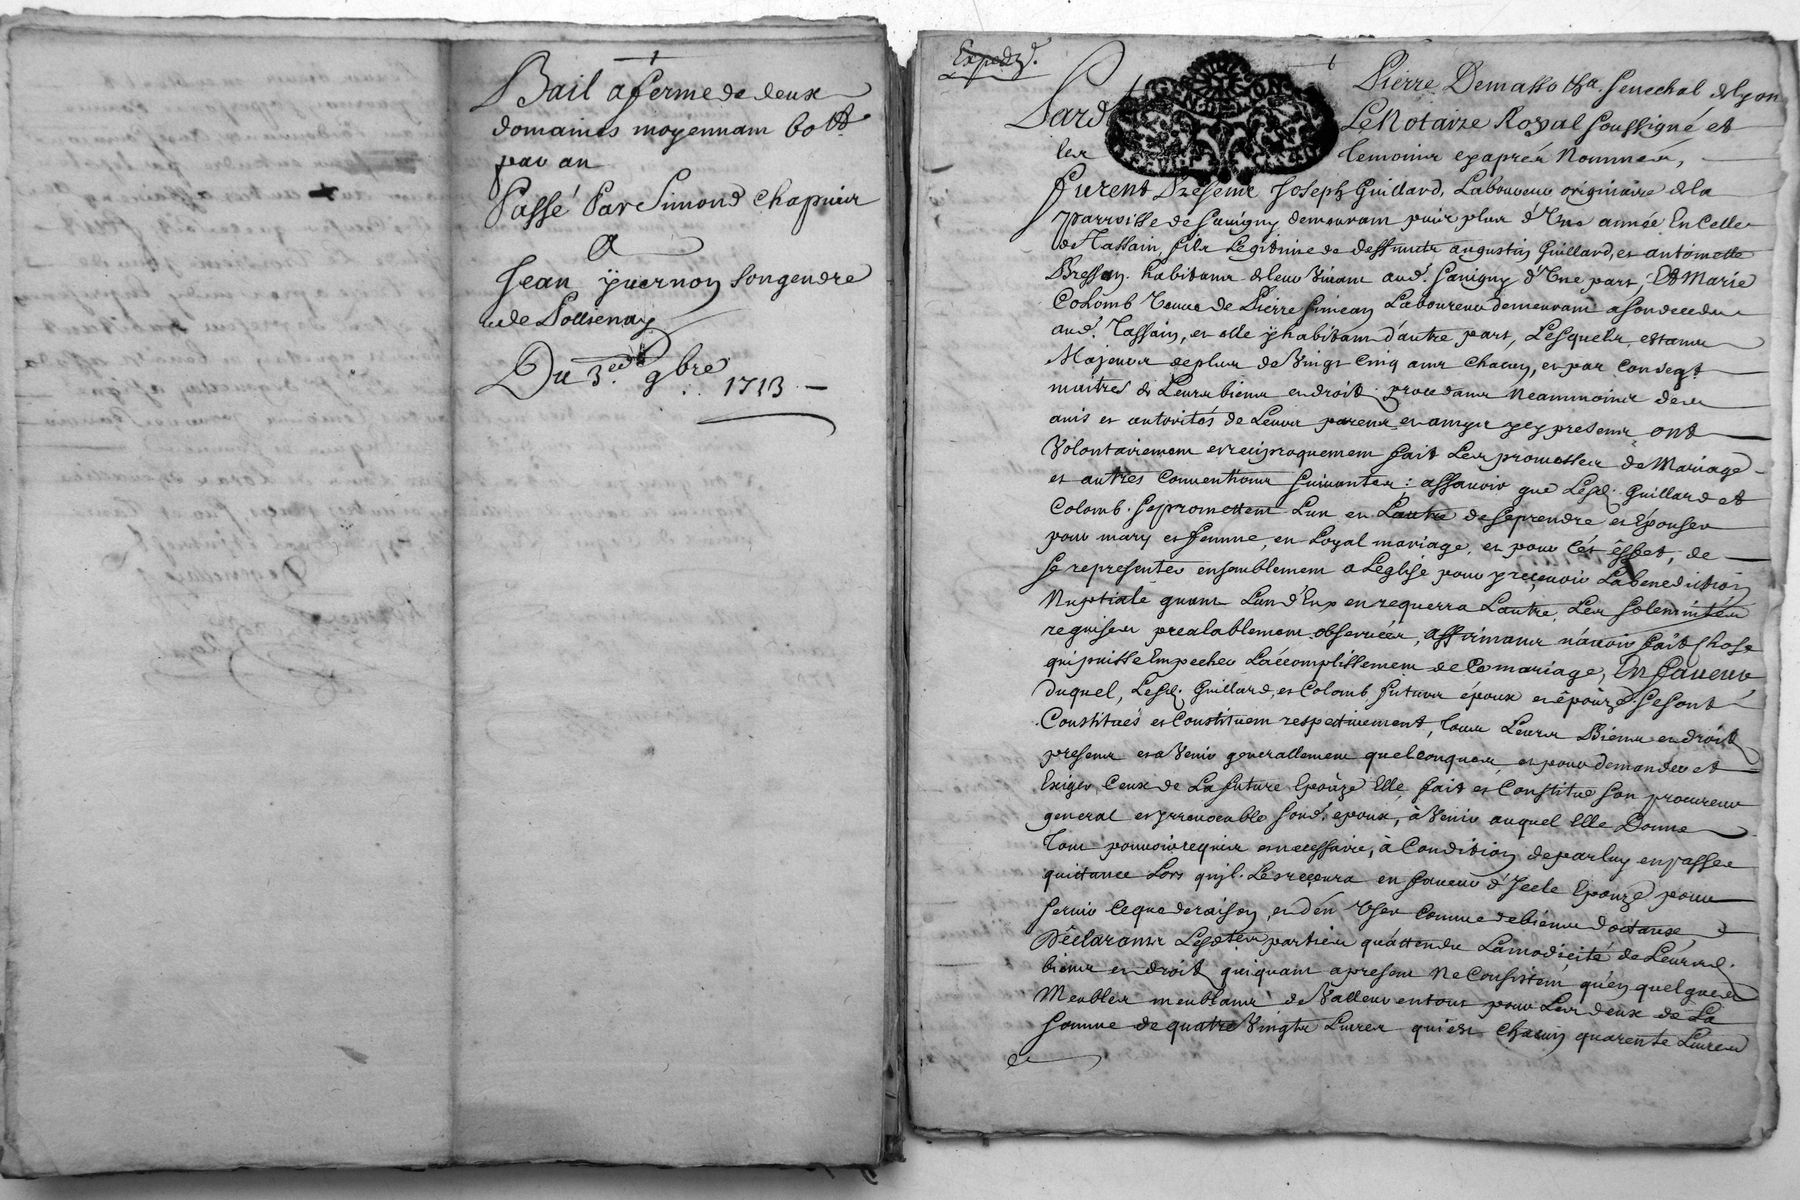 Bail a ferme de deux
domaines moyennant 60 lt
par an
Passé Par Simond Chapuis
A
Jean yvernon son gendre
de Pollienay
Du 3e. 9bre
1713
Expedié.
Pierre Demasso Senechal de lyon
Pard
Le Notaire Royal soussigné et
les
temoins cyaprés Nommés,
furent Presens Joseph Guillard, Laboureur originaire de la
parroisse de Savigny demeurant puis plus d'Une année En celle
de Tassain fils Legitime de deffunts augustin Guillard, et antoinette
Bresson habitans de leur Vivant aud. Savigny d'Une part, Et Marie
Colomb Veuve de Pierre Simean Laboureur demeurant a son deceds
aud. Tassain, et elle y habitant d'autre part, Lesquels estans
Majeurs de plus de Vingt Cinq ans chacun, et par Conseqt
maitres de Leurs biens et droits procedans Neammoins des
avis et autorités de Leurs parens et amys ycy presens ont
Volontairement et reciproquement fait Les promesses de Mariage
et autres Conventions suivantes : assavoir que Lesd. Guillard et
Colomb. se promettent Lun en Lautre de se prendre et Epouser
pour mary et femme, en Loyal mariage, et pour cét éffet, de
se representer ensemblement a Leglise pour y reçevoir La benediction
Nuptiale quant Lun d'Eux en requerra Lautre, Les solemnités
requises prealablement observées, affirmans n'avoir fait chose
qui puisse Empecher L'accomplissement de Ce mariage, En faveur
duquel, Lesd. Guillard, et Colomb futurs époux et épouze se sont
Constitués et Constituent respectivement, tous Leurs Biens et droits
presens et a Venir generallement quelconques, et pour demander et
Exiger Ceux de La future Epouze Elle fait et Constitue son procureur
general et yrrevocable sond. epoux, à Venir auquel Elle Donne
tout pouvoir requis et necessaire, à Condition de par luy en passer
quittance Lors qu'il Les reçevra en faveur d'Icele Epouze pour
servir Ce que de raison, et d'én Vser Comme de biens doctaux,
Déclarans Lesdtes parties qu'attendu La modicité de Leursd.
biens et droits qui quant a present Ne Consistent qu'en quelques
Meubles meublans de Valleur entour pour Les deux de La
somme de quatre Vingts Livres qui est Chacun quarente Livres